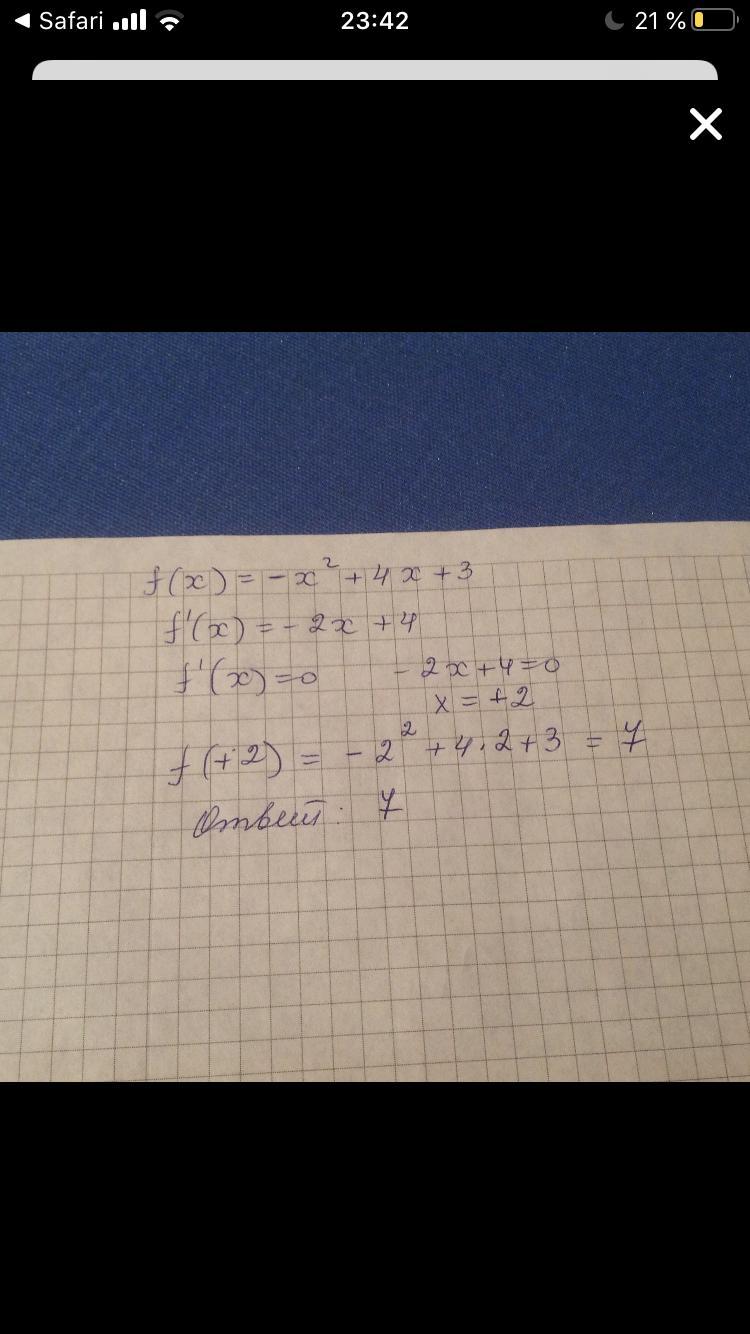 Safari 23:42 21 %
f(x) = -x² + 4x + 3
f'(x) = - 2x + 4
f'(x) = 0 - 2x + 4 = 0
x = +2
f(+2) = - 2² + 4 · 2 + 3 = 7
Ответ: 7